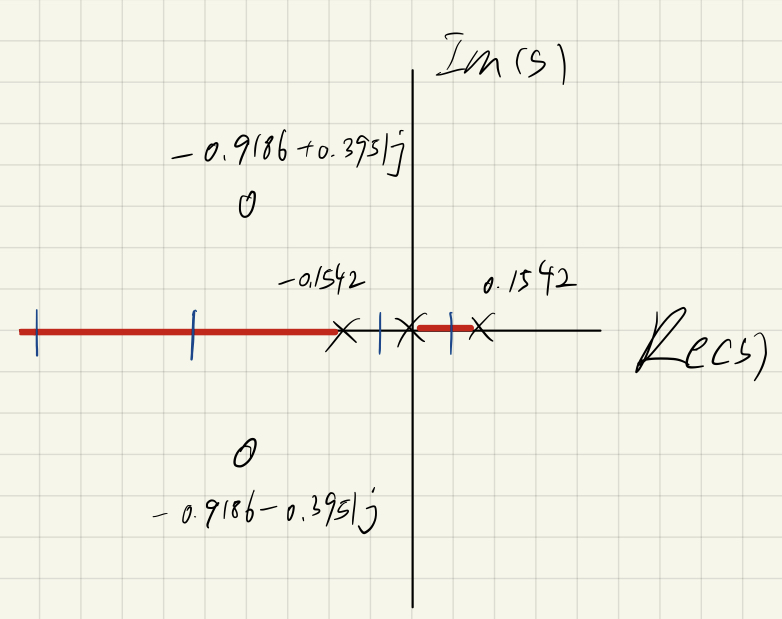 Im(s)
- 0.9186 + 0.3951j
-0.1542
0.1542
Re(s)
- 0.9186 - 0.3951j